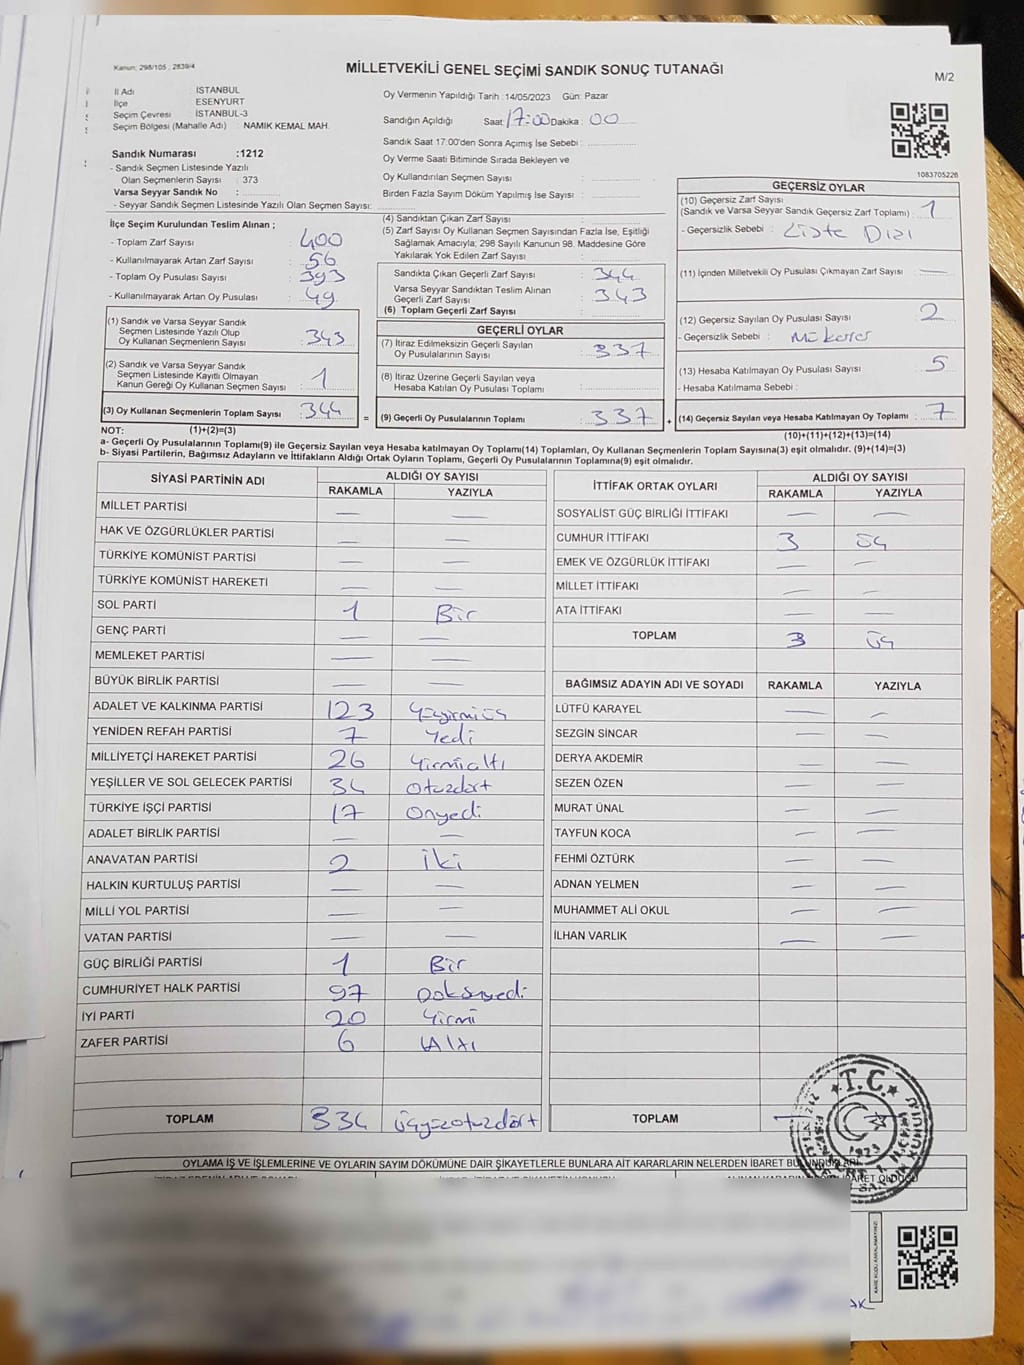 Kanun; 298/105 ; 2839/4
MİLLETVEKİLİ GENEL SEÇİMİ SANDIK SONUÇ TUTANAĞI
M/2
İl Adı : İSTANBUL
İlçe : ESENYURT
Seçim Çevresi : İSTANBUL-3
Seçim Bölgesi (Mahalle Adı) : NAMIK KEMAL MAH.
Oy Vermenin Yapıldığı Tarih : 14/05/2023 Gün: Pazar
Sandığın Açıldığı Saat: 17:00 Dakika : 00
Sandık Saat 17:00'den Sonra Açımış İse Sebebi :
Oy Verme Saati Bitiminde Sırada Bekleyen ve
Oy Kullandırılan Seçmen Sayısı :
Birden Fazla Sayım Döküm Yapılmış İse Sayısı :
1083705226
Sandık Numarası :1212
- Sandık Seçmen Listesinde Yazılı
Olan Seçmenlerin Sayısı : 373
Varsa Seyyar Sandık No :
- Seyyar Sandık Seçmen Listesinde Yazılı Olan Seçmen Sayısı:
İlçe Seçim Kurulundan Teslim Alınan ;
- Toplam Zarf Sayısı : 400
- Kullanılmayarak Artan Zarf Sayısı : 56
- Toplam Oy Pusulası Sayısı : 393
- Kullanılmayarak Artan Oy Pusulası : 49
(1) Sandık ve Varsa Seyyar Sandık
Seçmen Listesinde Yazılı Olup
Oy Kullanan Seçmenlerin Sayısı : 343
(2) Sandık ve Varsa Seyyar Sandık
Seçmen Listesinde Kayıtlı Olmayan
Kanun Gereği Oy Kullanan Seçmen Sayısı : 1
(3) Oy Kullanan Seçmenlerin Toplam Sayısı : 344 =
(4) Sandıktan Çıkan Zarf Sayısı :
(5) Zarf Sayısı Oy Kullanan Seçmen Sayısından Fazla İse, Eşitliği
Sağlamak Amacıyla; 298 Sayılı Kanunun 98. Maddesine Göre
Yakılarak Yok Edilen Zarf Sayısı :
Sandıkta Çıkan Geçerli Zarf Sayısı : 344
Varsa Seyyar Sandıktan Teslim Alınan
Geçerli Zarf Sayısı : 343
(6) Toplam Geçerli Zarf Sayısı :
GEÇERLİ OYLAR
(7) İtiraz Edilmeksizin Geçerli Sayılan
Oy Pusulalarının Sayısı : 337
(8) İtiraz Üzerine Geçerli Sayılan veya
Hesaba Katılan Oy Pusulası Toplamı :
(9) Geçerli Oy Pusulalarının Toplamı : 337 +
GEÇERSİZ OYLAR
(10) Geçersiz Zarf Sayısı
(Sandık ve Varsa Seyyar Sandık Geçersiz Zarf Toplamı) : 1
- Geçersizlik Sebebi : Liste Dışı
(11) İçinden Milletvekili Oy Pusulası Çıkmayan Zarf Sayısı : —
(12) Geçersiz Sayılan Oy Pusulası Sayısı : 2
- Geçersizlik Sebebi : Mükerrer
(13) Hesaba Katılmayan Oy Pusulası Sayısı : 5
- Hesaba Katılmama Sebebi :
(14) Geçersiz Sayılan veya Hesaba Katılmayan Oy Toplamı : 7
NOT: (1)+(2)=(3)
(10)+(11)+(12)+(13)=(14)
a- Geçerli Oy Pusulalarının Toplamı(9) ile Geçersiz Sayılan veya Hesaba katılmayan Oy Toplamı(14) Toplamları, Oy Kullanan Seçmenlerin Toplam Sayısına(3) eşit olmalıdır. (9)+(14)=(3)
b- Siyasi Partilerin, Bağımsız Adayların ve İttifakların Aldığı Ortak Oyların Toplamı, Geçerli Oy Pusulalarının Toplamına(9) eşit olmalıdır.
SİYASİ PARTİNİN ADI
ALDIĞI OY SAYISI
RAKAMLA YAZIYLA
MİLLET PARTİSİ — —
HAK VE ÖZGÜRLÜKLER PARTİSİ — —
TÜRKİYE KOMÜNİST PARTİSİ — —
TÜRKİYE KOMÜNİST HAREKETİ — —
SOL PARTİ 1 Bir
GENÇ PARTİ — —
MEMLEKET PARTİSİ — —
BÜYÜK BİRLİK PARTİSİ — —
ADALET VE KALKINMA PARTİSİ 123 Yüzyirmiüç
YENİDEN REFAH PARTİSİ 7 Yedi
MİLLİYETÇİ HAREKET PARTİSİ 26 Yirmialtı
YEŞİLLER VE SOL GELECEK PARTİSİ 34 Otuzdört
TÜRKİYE İŞÇİ PARTİSİ 17 Onyedi
ADALET BİRLİK PARTİSİ — —
ANAVATAN PARTİSİ 2 İki
HALKIN KURTULUŞ PARTİSİ — —
MİLLİ YOL PARTİSİ — —
VATAN PARTİSİ — —
GÜÇ BİRLİĞİ PARTİSİ 1 Bir
CUMHURİYET HALK PARTİSİ 97 Doksanyedi
İYİ PARTİ 20 Yirmi
ZAFER PARTİSİ 6 Altı
TOPLAM 334 üçyüzotuzdört
İTTİFAK ORTAK OYLARI
ALDIĞI OY SAYISI
RAKAMLA YAZIYLA
SOSYALİST GÜÇ BİRLİĞİ İTTİFAKI — —
CUMHUR İTTİFAKI 3 üç
EMEK VE ÖZGÜRLÜK İTTİFAKI — —
MİLLET İTTİFAKI — —
ATA İTTİFAKI — —
TOPLAM 3 üç
BAĞIMSIZ ADAYIN ADI VE SOYADI RAKAMLA YAZIYLA
LÜTFÜ KARAYEL — —
SEZGİN SİNCAR — —
DERYA AKDEMİR — —
SEZEN ÖZEN — —
MURAT ÜNAL — —
TAYFUN KOCA — —
FEHMİ ÖZTÜRK — —
ADNAN YELMEN — —
MUHAMMET ALİ OKUL — —
İLHAN VARLIK — —
TOPLAM —
T.C.
1923
OYLAMA İŞ VE İŞLEMLERİNE VE OYLARIN SAYIM DÖKÜMÜNE DAİR ŞİKAYETLERLE BUNLARA AİT KARARLARIN NELERDEN İBARET BULUNDUKLARI